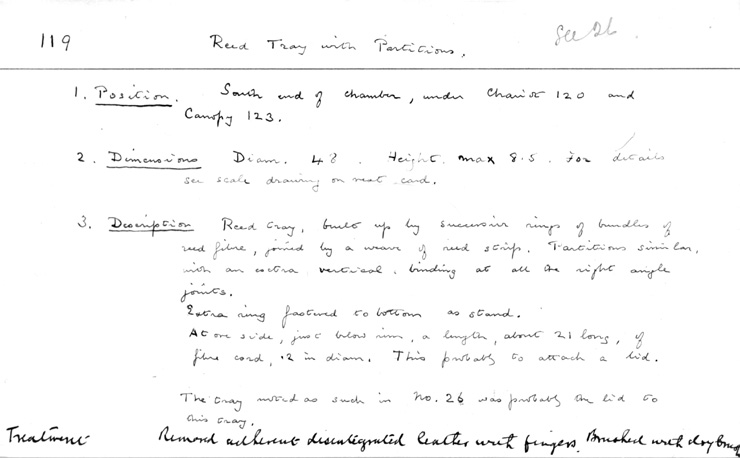 119 Reed Tray with Partitions. See 26.
1. Position. South end of chamber, under Chariot 120 and
Canopy 123.
2. Dimensions Diam. 48. Height. max 8.5. For details
see scale drawing on next card.
3. Description Reed tray, built up by successive rings of bundles of
reed fibre, joined by a weave of reed strip. Partitions similar,
with an extra vertical binding at all the right angle
joints.
Extra ring fastened to bottom as stand.
At one side, just below rim, a length, about 21 long, of
fibre cord, .2 in diam. This probably to attach a lid.
The tray noted as such in No. 26 was probably the lid to
this tray.
Treatment Removed adherent disintegrated leather with fingers. Brushed with dry brush